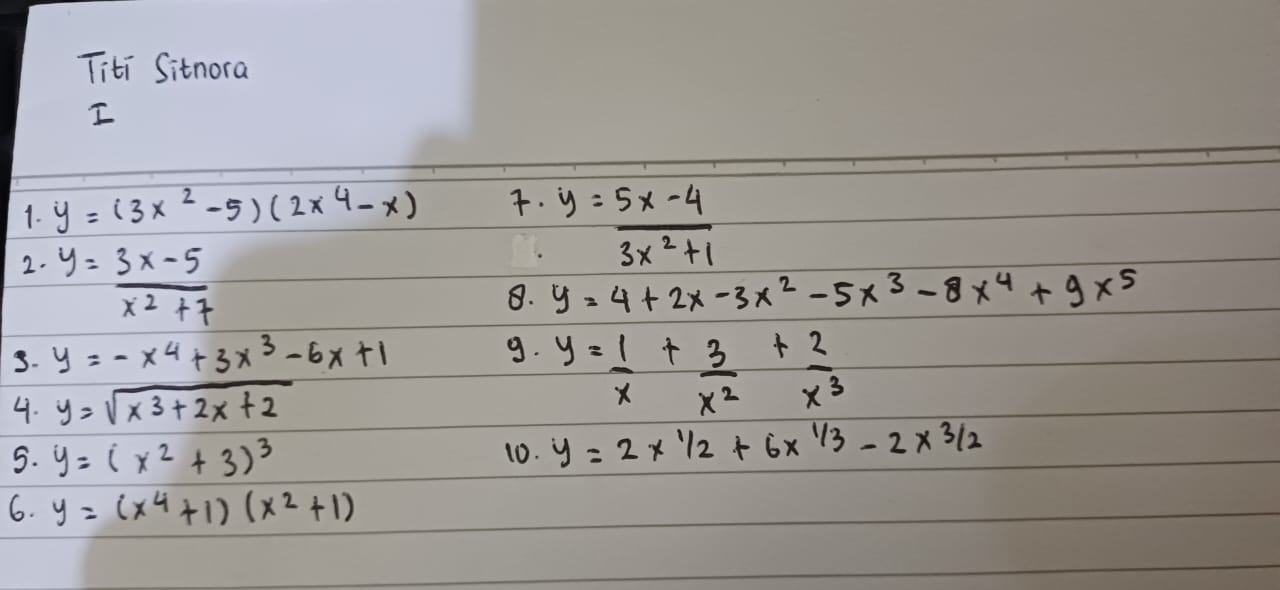 Titi Sitnora
I
1. y = (3x² - 5)(2x⁴ - x)
2. y = 3x - 5
x² + 7
3. y = - x⁴ + 3x³ - 6x + 1
4. y = √x3 + 2x + 2
5. y = (x² + 3)³
6. y = (x⁴ + 1) (x² + 1)
7. y = 5x - 4
3x² + 1
8. y = 4 + 2x - 3x² - 5x³ - 8x⁴ + 9x⁵
9. y = 1 + 3 + 2
x x² x³
10. y = 2x ½ + 6x ⅓ - 2x 3/2